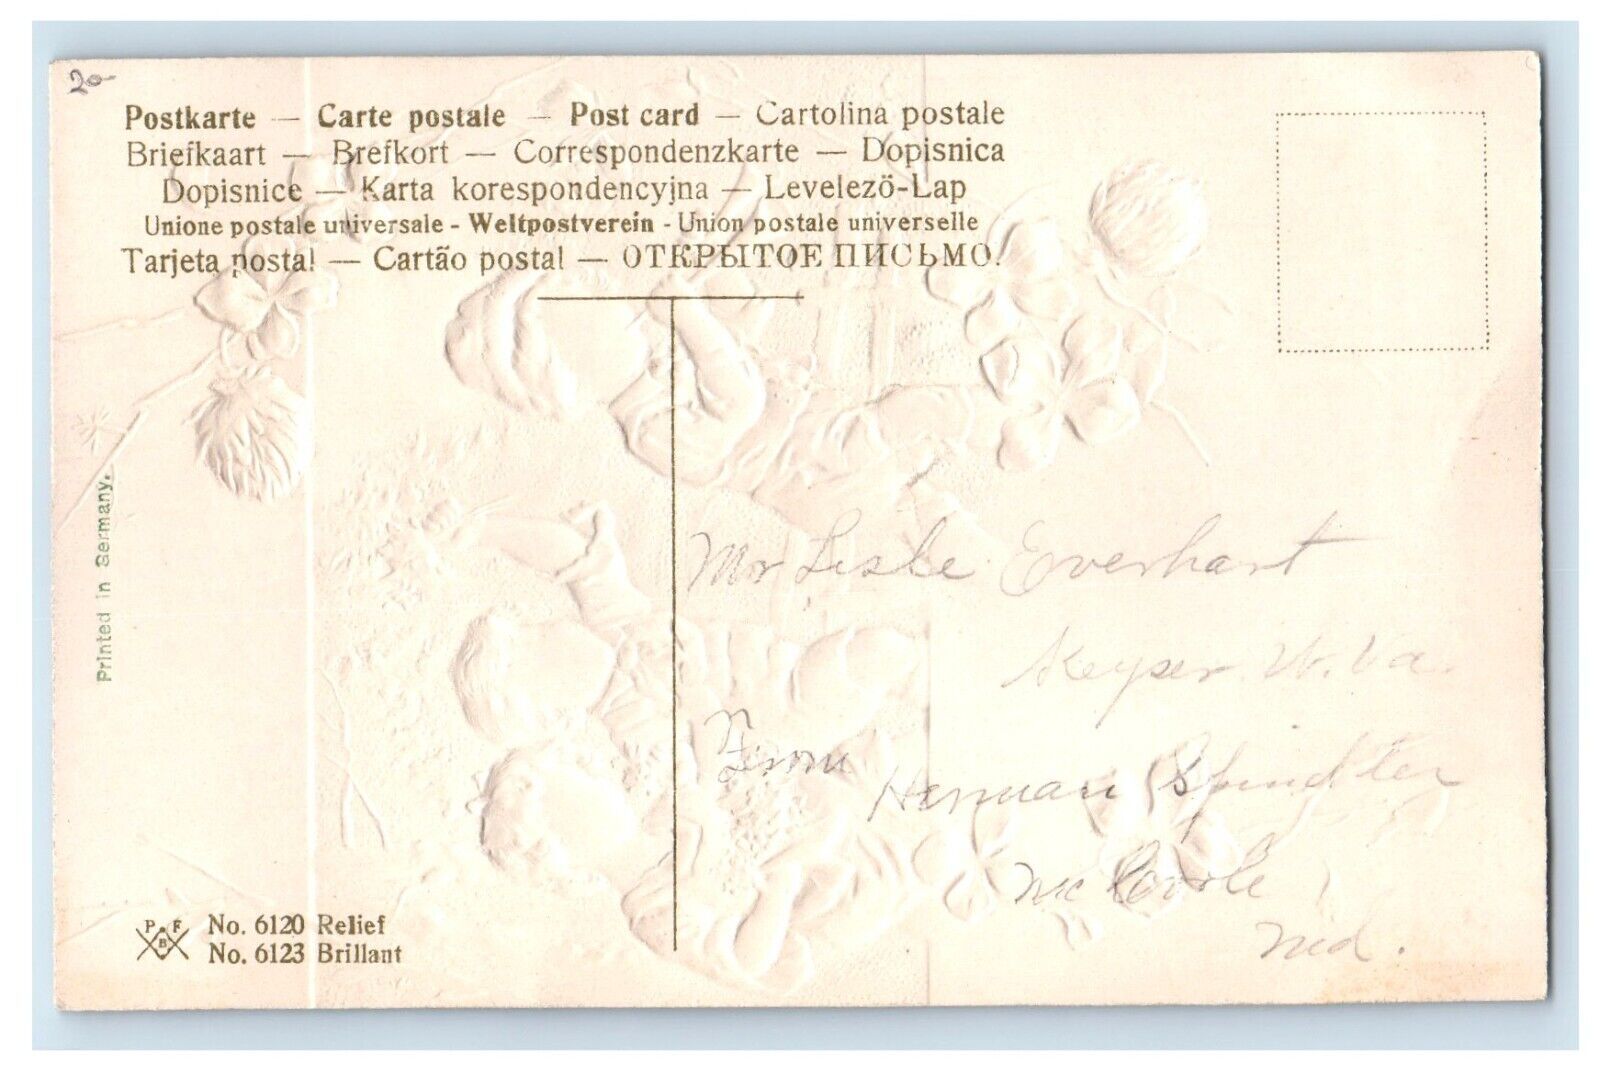 20-
Postkarte — Carte postale — Post card — Cartolina postale
Briefkaart — Brefkort — Correspondenzkarte — Dopisnica
Dopisnice — Karta korespondencyjna — Levelezö-Lap
Unione postale universale - Weltpostverein - Union postale universelle
Tarjeta postal — Cartão postal — ОТКРЫТОЕ ПИСЬМО.
Printed in Germany.
Mr Lesle Everhart
Keyser W. Va.
From
Herman Spindler
Mc Coole
Md.
P F B
No. 6120 Relief
No. 6123 Brillant